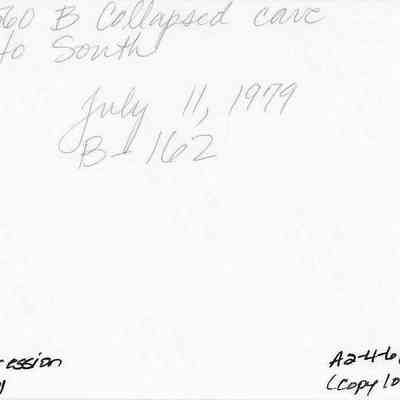 560 B Collapsed cave
to South
July 11, 1979
B-162
cession
A2-4-6
(copy 10